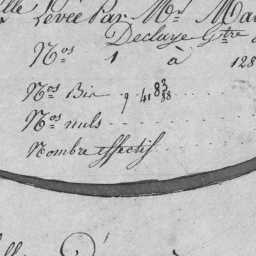 lle Levée Par Mr. Ma
Decluye Gtre
Nos 1 à 128
Nos Bis . . 9. 41 83 88 . . .
Nos nuls . . . . . . . .
Nombre effectif . . . . .